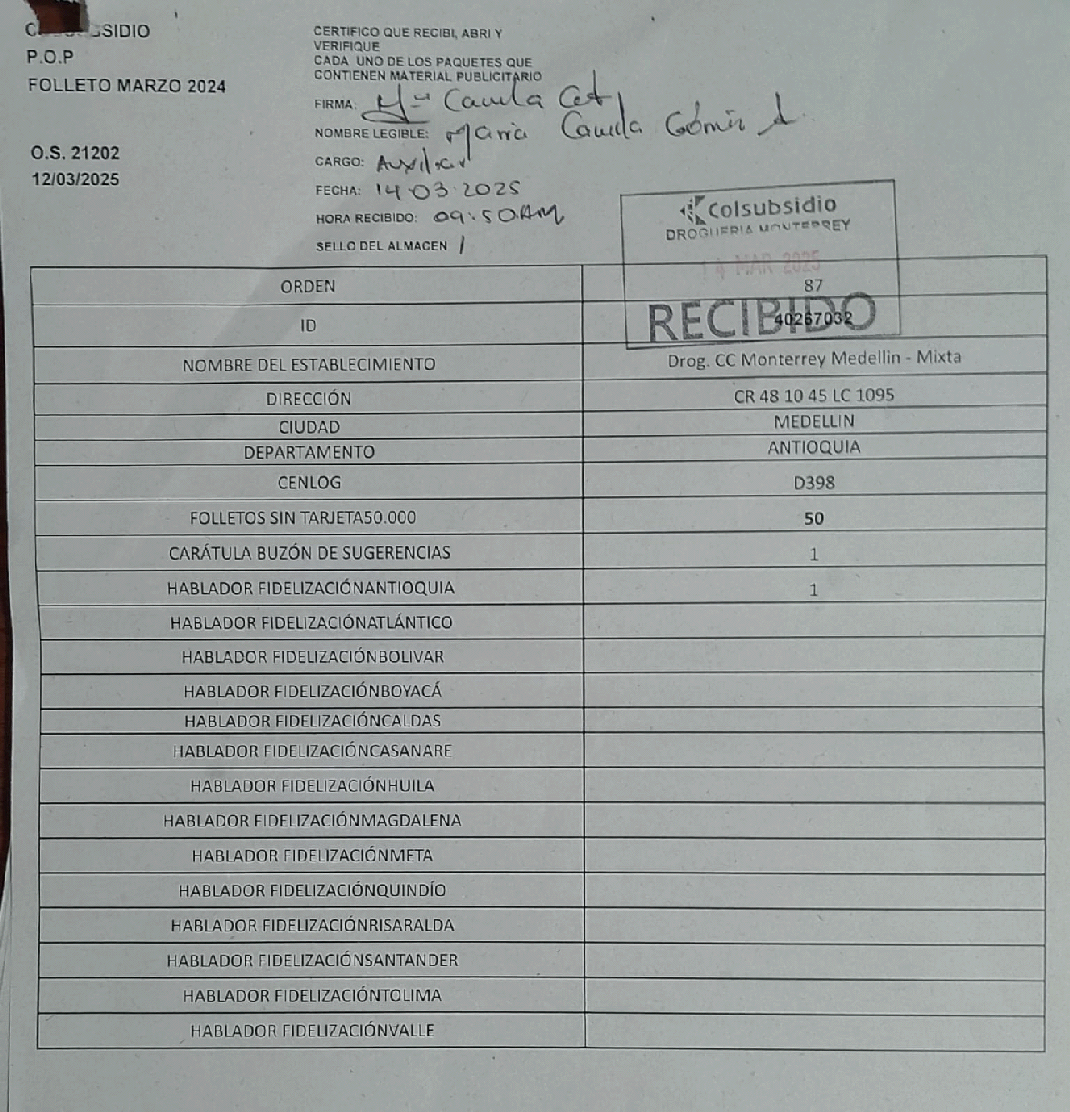 SSIDIO
P.O.P
FOLLETO MARZO 2024
O.S. 21202
12/03/2025
CERTIFICO QUE RECIBI, ABRI Y
VERIFIQUE
CADA UNO DE LOS PAQUETES QUE
CONTIENEN MATERIAL PUBLICITARIO
FIRMA: Mª Camila
NOMBRE LEGIBLE: Maria Camila Gómez
CARGO: Auxiliar
FECHA: 14.03.2025
HORA RECIBIDO: 09:50AM
SELLO DEL ALMACEN
Colsubsidio
DROGUERIA MONTERREY
14 MAR 2025
RECIBIDO
ORDEN 87
ID 40267032
NOMBRE DEL ESTABLECIMIENTO Drog. CC Monterrey Medellin - Mixta
DIRECCIÓN CR 48 10 45 LC 1095
CIUDAD MEDELLIN
DEPARTAMENTO ANTIOQUIA
CENLOG D398
FOLLETOS SIN TARJETA50.000 50
CARÁTULA BUZÓN DE SUGERENCIAS 1
HABLADOR FIDELIZACIÓNANTIOQUIA 1
HABLADOR FIDELIZACIÓNATLÁNTICO
HABLADOR FIDELIZACIÓNBOLIVAR
HABLADOR FIDELIZACIÓNBOYACÁ
HABLADOR FIDELIZACIÓNCALDAS
HABLADOR FIDELIZACIÓNCASANARE
HABLADOR FIDELIZACIÓNHUILA
HABLADOR FIDELIZACIÓNMAGDALENA
HABLADOR FIDELIZACIÓNMETA
HABLADOR FIDELIZACIÓNQUINDÍO
HABLADOR FIDELIZACIÓNRISARALDA
HABLADOR FIDELIZACIÓNSANTANDER
HABLADOR FIDELIZACIÓNTOLIMA
HABLADOR FIDELIZACIÓNVALLE